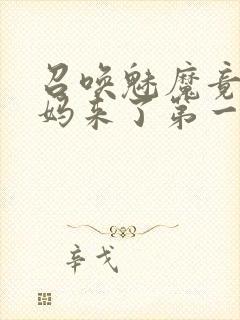 召唤魅魔竟
妈来了第一
辛戈